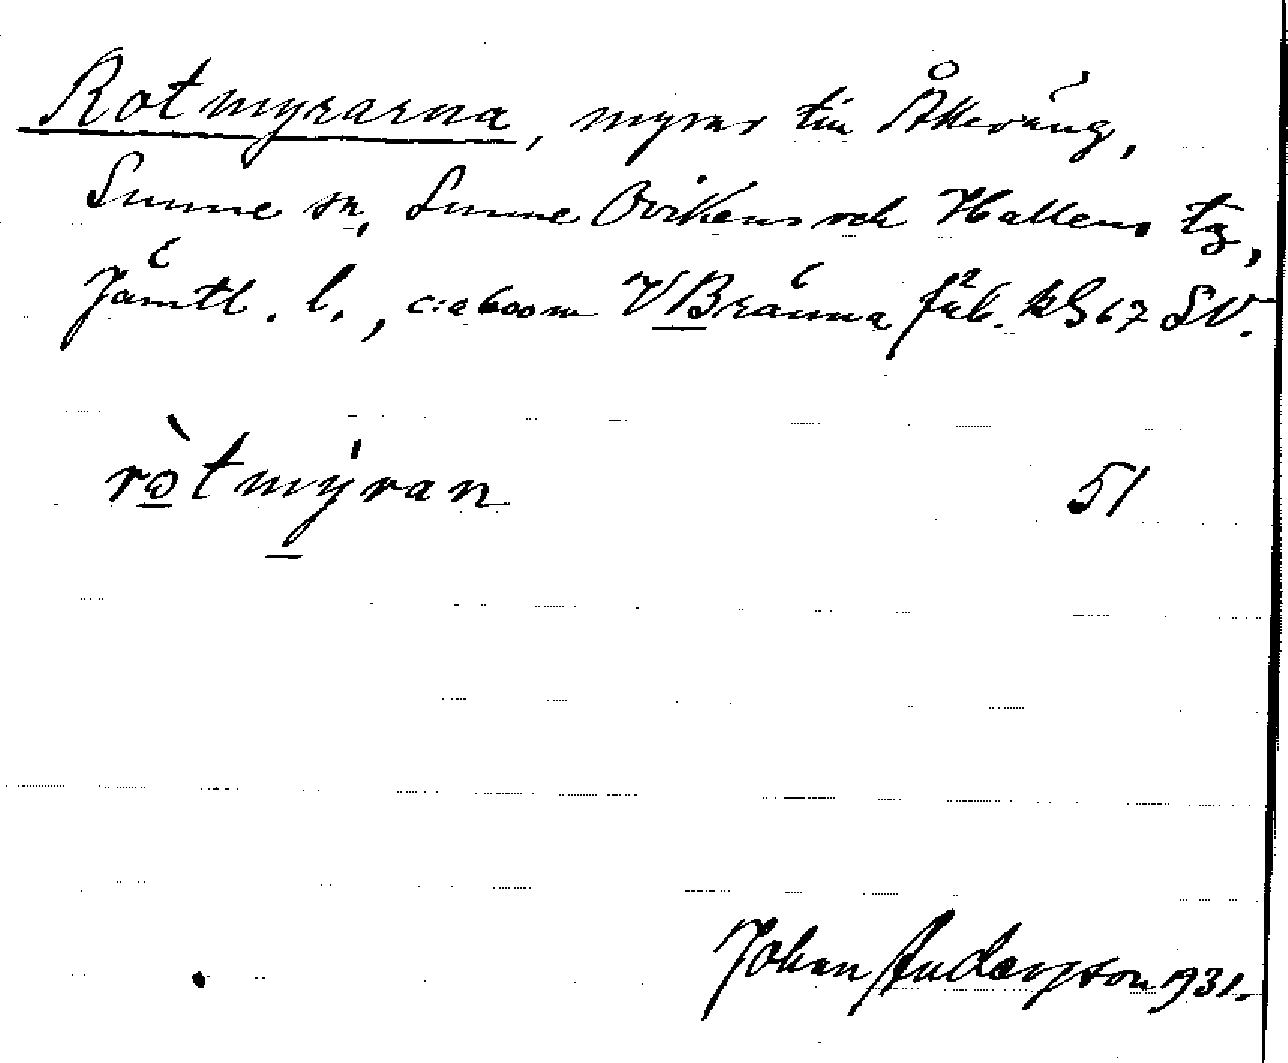 Rotmyrarna, myrar till Åkeräng,
Sunne sn, Sunne Ovikens och Hallens tg,
Jämtl. l., c:a 600 m V Bränna fäb. kG 67 SV.
ròtmýran 51
Johan Anderson 1931.